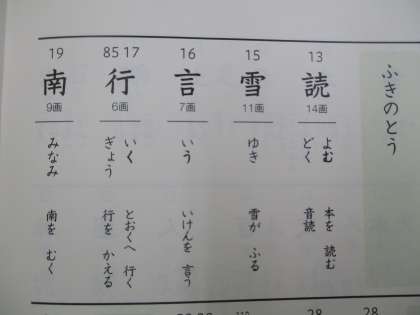 ふきのとう
13
読
14画
よむ
どく
本を 読む
音読
15
雪
11画
ゆき
雪が ふる
16
言
7画
いう
いけんを 言う
85 17
行
6画
いく
ぎょう
とおくへ 行く
行を かえる
19
南
9画
みなみ
南を むく
28
28